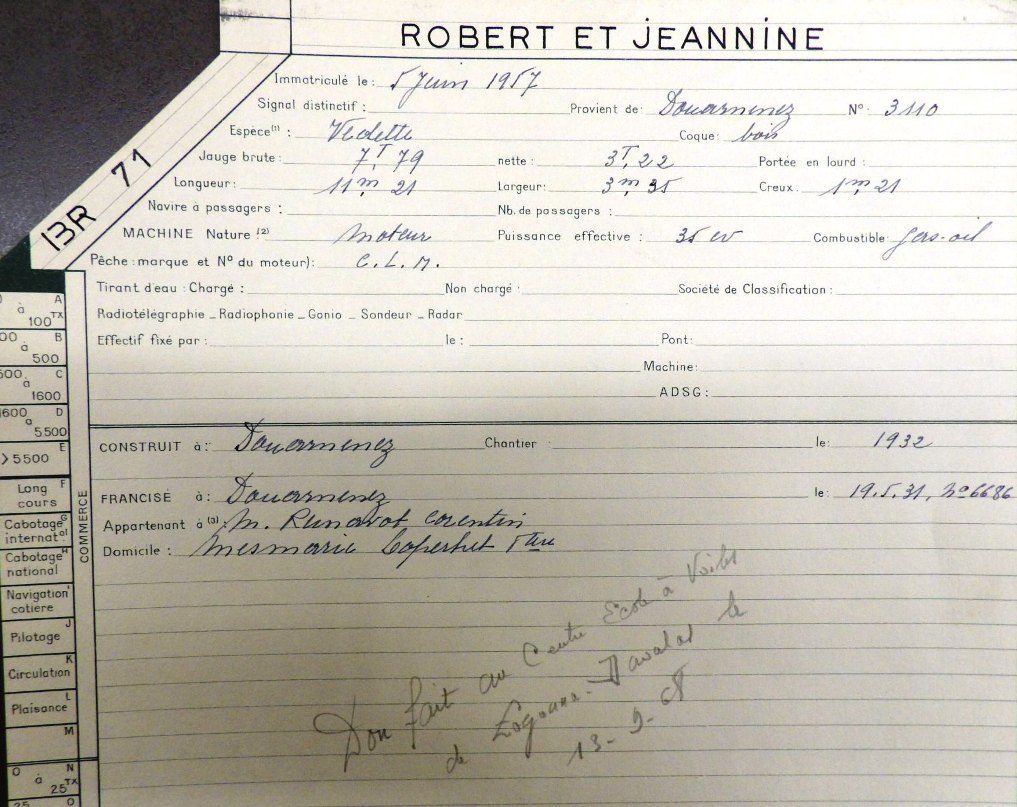 ROBERT ET JEANNINE
BR 71
Immatriculé le : 5 Juin 1957
Signal distinctif : Provient de : Douarnenez N° : 3110
Espèce (1) : Vedette Coque : bois
Jauge brute : 7T,79 nette : 3T,22 Portée en lourd :
Longueur : 11m,21 Largeur : 3m,35 Creux : 1m,21
Navire à passagers : Nb. de passagers :
MACHINE Nature (2) moteur Puissance effective : 35 cv Combustible gas-oil
Pêche : marque et N° du moteur) : C.L.M.
Tirant d'eau : Chargé : Non chargé : Société de Classification :
Radiotélégraphie _ Radiophonie _ Gonio _ Sondeur _ Radar
Effectif fixé par : le : Pont :
Machine :
ADSG :
CONSTRUIT à : Douarnenez Chantier : le : 1932
FRANCISÉ à : Douarnenez le : 19.5.31, N° 6686
Appartenant à (3) M. Corentin
Domicile :
Don fait au Centre Ecole à Voiles
de Logonna-Daoulas le
13-9-
A
à
100 TX
B
à
500
C
à
1600
1600 D
à
5.500
E
>5500
Long F
cours
Cabotage G
internat.al
Cabotage H
national
Navigation I
cotiere
J
Pilotage
K
Circulation
L
Plaisance
M
COMMERCE
O N
à TX
25
25 O